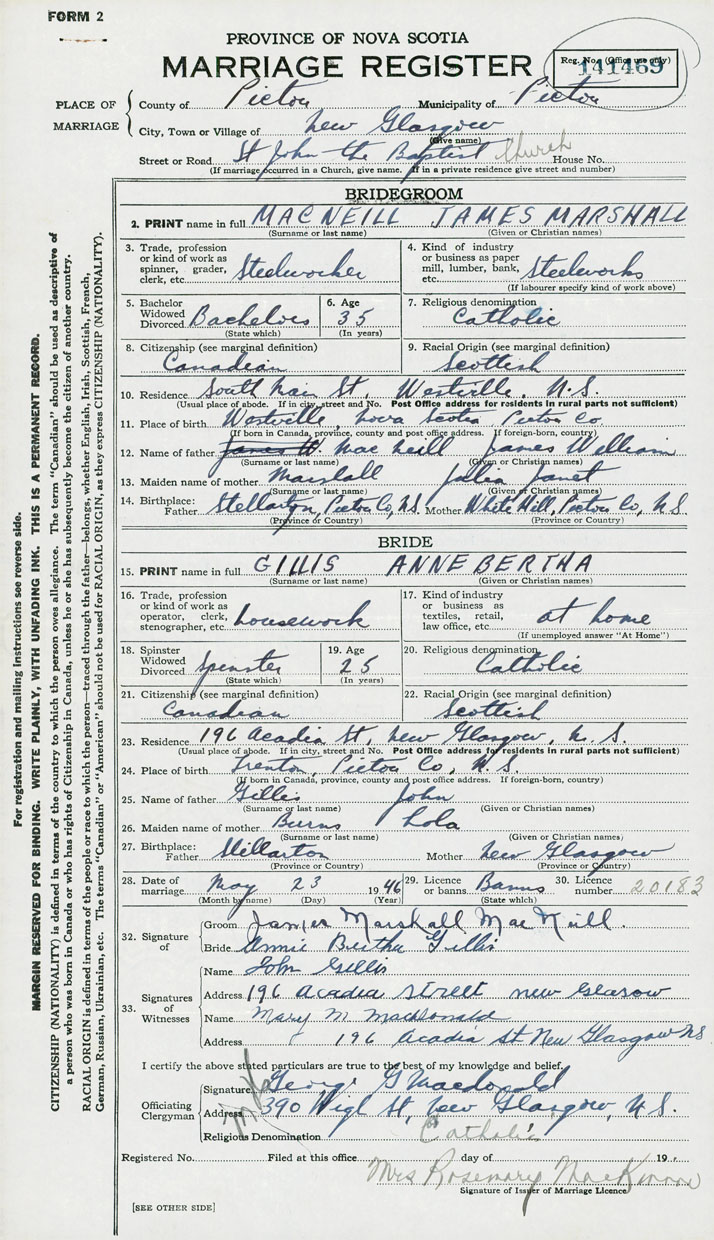 FORM 2
PROVINCE OF NOVA SCOTIA
MARRIAGE REGISTER
Reg. No. (Office use only)
141469
PLACE OF MARRIAGE
County of Pictou Municipality of Pictou
City, Town or Village of New Glasgow
(Give name)
Street or Road St John the Baptist Church House No.
(If marriage occurred in a Church, give name. If in a private residence give street and number)
BRIDEGROOM
2. PRINT name in full MACNEILL JAMES MARSHALL
(Surname or last name) (Given or Christian names)
3. Trade, profession or kind of work as spinner, grader, clerk, etc. Steelworker
4. Kind of industry or business as paper mill, lumber, bank, etc. Steelworks
(If labourer specify kind of work above)
5. Bachelor Widowed Divorced Bachelor
(State which)
6. Age 35
(In years)
7. Religious denomination Catholic
8. Citizenship (see marginal definition) Canadian
9. Racial Origin (see marginal definition) Scottish
10. Residence South Main St Westville, N.S.
(Usual place of abode. If in city, street and No. Post Office address for residents in rural parts not sufficient)
11. Place of birth Westville, Nova Scotia Pictou Co
(If born in Canada, province, county and post office address. If foreign-born, country)
12. Name of father James W MacNeill James William
(Surname or last name) (Given or Christian names)
13. Maiden name of mother Marshall Janet
(Surname or last name) (Given or Christian names)
14. Birthplace: Father Stellarton, Pictou Co, N.S. Mother White Hill, Pictou Co, N.S.
(Province or Country) (Province or Country)
BRIDE
15. PRINT name in full GILLIS ANNE BERTHA
(Surname or last name) (Given or Christian names)
16. Trade, profession or kind of work as operator, clerk, stenographer, etc. housework
17. Kind of industry or business as textiles, retail, law office, etc. at home
(If unemployed answer "At Home")
18. Spinster Widowed Divorced Spinster
(State which)
19. Age 25
(In years)
20. Religious denomination Catholic
21. Citizenship (see marginal definition) Canadian
22. Racial Origin (see marginal definition) Scottish
23. Residence 196 Acadia St, New Glasgow, N.S.
(Usual place of abode. If in city, street and No. Post Office address for residents in rural parts not sufficient)
24. Place of birth Trenton, Pictou Co, N.S.
(If born in Canada, province, county and post office address. If foreign-born, country)
25. Name of father Gillis John
(Surname or last name) (Given or Christian names)
26. Maiden name of mother Burns Lola
(Surname or last name) (Given or Christian names)
27. Birthplace: Father Stellarton Mother New Glasgow
(Province or Country) (Province or Country)
28. Date of marriage May 23 1946
(Month by name) (Day) (Year)
29. Licence or banns Banns
(State which)
30. Licence number 20183
32. Signature of
Groom James Marshall MacNeill.
Bride Annie Bertha Gillis
33. Signatures of Witnesses
Name John Gillis
Address 196 Acadia Street New Glasgow
Name Mary M MacDonald
Address 196 Acadia St New Glasgow NS
I certify the above stated particulars are true to the best of my knowledge and belief.
Officiating Clergyman
Signature George G Macdonald
Address 390 High St, New Glasgow, N.S.
Religious Denomination Catholic
Registered No. Filed at this office day of 19
Mrs Rosemary MacKinnon
Signature of Issuer of Marriage Licence
[SEE OTHER SIDE]
For registration and mailing instructions see reverse side.
MARGIN RESERVED FOR BINDING. WRITE PLAINLY, WITH UNFADING INK. THIS IS A PERMANENT RECORD.
CITIZENSHIP (NATIONALITY) is defined in terms of the country to which the person owes allegiance. The term "Canadian" should be used as descriptive of
a person who was born in Canada or who has rights of Citizenship in Canada, unless he or she has subsequently become the citizen of another country.
RACIAL ORIGIN is defined in terms of the people or race to which the person—traced through the father—belongs, whether English, Irish, Scottish, French,
German, Russian, Ukrainian, etc. The terms "Canadian" or "American" should not be used for RACIAL ORIGIN, as they express CITIZENSHIP (NATIONALITY).